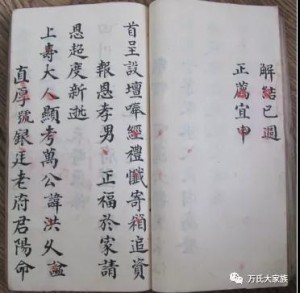 解結已週
正薦宜申
首呈設壇唪經禮懺寄箱追資
報恩孝男 正福於家請
恩超度新逝
上壽大人顯考萬公諱洪乂謚
直厚號銀廷老府君陽命
万氏大家族